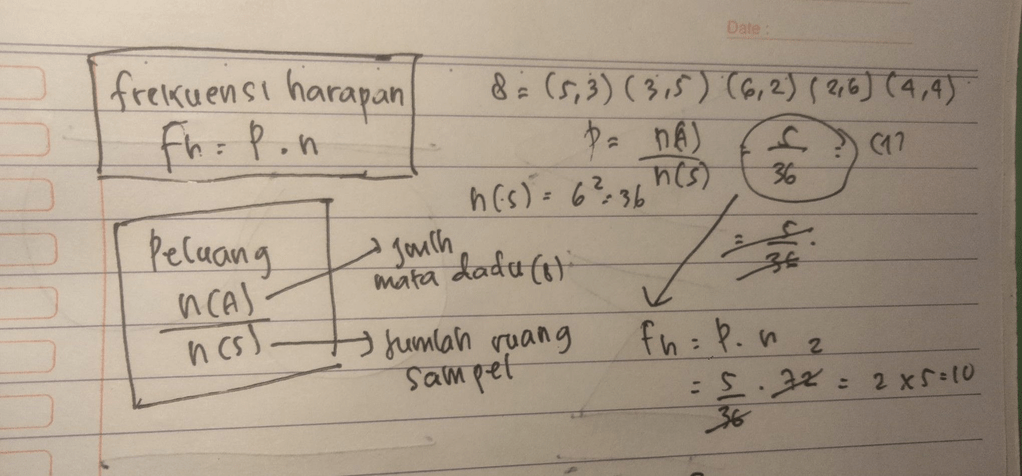 Date :
frekuensi harapan
fh = P . n
8 = (5,3) (3,5) (6,2) (2,6) (4,4)
P = n(A) / n(S) = 5 / 36
n(S) = 6² = 36
= 5 / 36
Peluang
n(A)
n(S)
mata dadu (8)
Jumlah ruang
sampel
fh = P . n
= 5 / 36 . 72 2 = 2 x 5 = 10